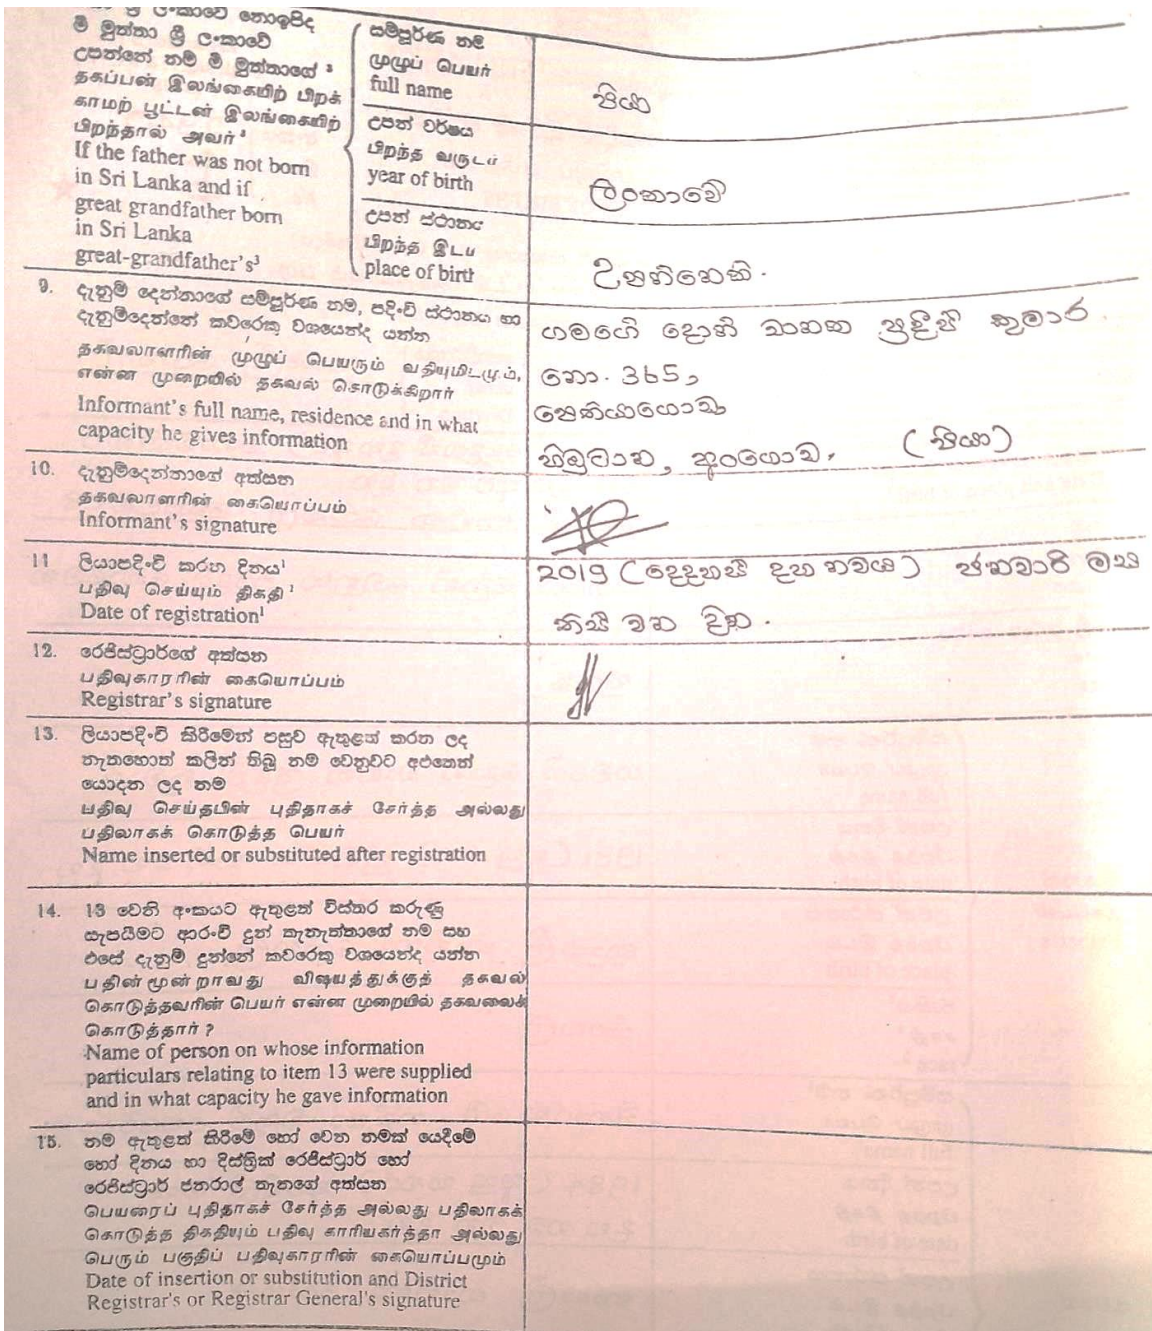 ශ්‍රී ලංකාවේ නොඉපිද
මී මුත්තා ශ්‍රී ලංකාවේ
උපන්නේ නම් මී මුත්තාගේ ³
தகப்பன் இலங்கையிற் பிறக்
காமற் பூட்டன் இலங்கையிற்
பிறந்தால் அவர் ³
If the father was not born
in Sri Lanka and if
great grandfather born
in Sri Lanka
great-grandfather's³
සම්පූර්ණ නම
முழுப் பெயர்
full name
පියා
උපන් වර්ෂය
பிறந்த வருடம்
year of birth
ලංකාවේ
උපන් ස්ථානය
பிறந்த இடம்
place of birth
උපන්නෙකි.
9. දැනුම් දෙන්නාගේ සම්පූර්ණ නම, පදිංචි ස්ථානය හා
දැනුම්දෙන්නේ කවරෙකු වශයෙන්ද යන්න
தகவலாளரின் முழுப் பெயரும் வதியுமிடமும்,
என்ன முறையில் தகவல் கொடுக்கிறார்
Informant's full name, residence and in what
capacity he gives information
ගමගේ දොන් ප්‍රදීප් කුමාර
නො. 365,
හිඹුටාන, අංගොඩ. (පියා)
10. දැනුම්දෙන්නාගේ අත්සන
தகவலாளரின் கையொப்பம்
Informant's signature
11 ලියාපදිංචි කරන දිනය¹
பதிவு செய்யும் திகதி ¹
Date of registration¹
2019 (දෙදහස් දහ නවය) ජනවාරි මස
තිස් වන දින.
12. රෙජිස්ට්‍රාර්ගේ අත්සන
பதிவுகாரரின் கையொப்பம்
Registrar's signature
13. ලියාපදිංචි කිරීමෙන් පසුව ඇතුළත් කරන ලද
නැතහොත් කලින් තිබූ නම වෙනුවට අළුතෙන්
යොදන ලද නම
பதிவு செய்தபின் புதிதாகச் சேர்த்த அல்லது
பதிலாகக் கொடுத்த பெயர்
Name inserted or substituted after registration
14. 13 වෙනි අංකයට ඇතුළත් විස්තර කරුණු
සැපයීමට ආරංචි දුන් තැනැත්තාගේ නම සහ
එසේ දැනුම් දුන්නේ කවරෙකු වශයෙන්ද යන්න
பதின்மூன்றாவது விஷயத்துக்குத் தகவல்
கொடுத்தவரின் பெயர் என்ன முறையில் தகவலைக்
கொடுத்தார் ?
Name of person on whose information
particulars relating to item 13 were supplied
and in what capacity he gave information
15. නම ඇතුළත් කිරීමේ හෝ වෙන නමක් යෙදීමේ
හෝ දිනය හා දිස්ත්‍රික් රෙජිස්ට්‍රාර් හෝ
රෙජිස්ට්‍රාර් ජනරාල් තැනගේ අත්සන
பெயரைப் புதிதாகச் சேர்த்த அல்லது பதிலாகக்
கொடுத்த திகதியும் பதிவு காரியகர்த்தா அல்லது
பெரும் பகுதிப் பதிவுகாரரின் கையொப்பமும்
Date of insertion or substitution and District
Registrar's or Registrar General's signature